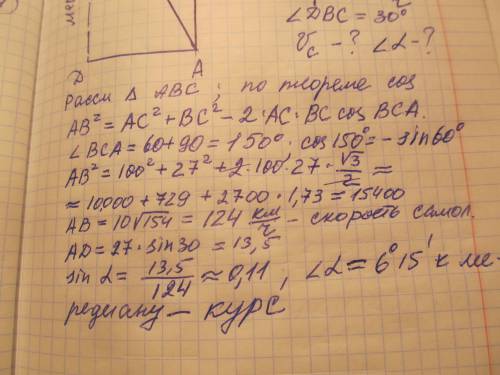 мер
D
A
∠DBC = 30°
υc - ? ∠α - ?
Рассм △ ABC ; по теореме cos
AB² = AC² + BC² - 2·AC·BC cos BCA.
∠BCA = 60+90 = 150° · cos150° = - sin60°
AB² = 100² + 27² + 2·100·27 · √3/2 ≈
≈ 10000 + 729 + 2700 · 1,73 = 15400
AB = 10√154 = 124 км/ч - скорость самол.
AD = 27 · sin30 = 13,5
sin α = 13,5/124 ≈ 0,11 , ∠α = 6°15' к ме-
редиану - курс